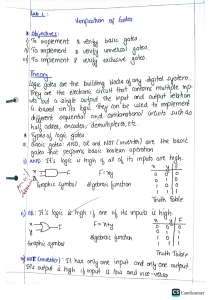 Lab 1:
Verification of Gates
Objectives:
i) To implement & verify basic gates.
ii) To implement & verify universal gates.
iii) To implement & verify exclusive gates.
Theory
Logic gates are the building blocks of any digital system.
They are the electronic circuit that contains multiple inp-
uts but a single output the input and output relation
is based on its logic. They can be used to implement
different sequential and combinational circuits such as
half adder, encoder, demultiplexer, etc.
Types of logic gates:
Basic gates: AND, OR and NOT (inverter) are the basic
gates that perform basic boolean operation
i) AND: It's logic is high if all of its inputs are high.
x
y
F = xy
x y F
0 0 0
0 1 0
1 0 0
1 1 1
Graphic symbol
Algebraic function
Truth Table
ii) OR: It's logic is high if one of its inputs is high.
x
y
F
F = x+y
x y F
0 0 0
0 1 1
1 0 1
1 1 1
Graphic symbol
Algebraic function
Truth Table
iii) NOT (Inverter): It has only one input and only one output
It's output is high if input is low and vice-versa
CS CamScanner